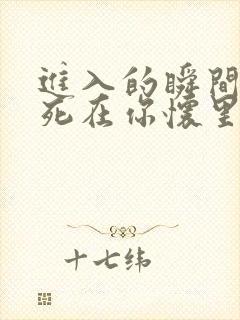 進入的瞬間
死在你懷里
十七緯